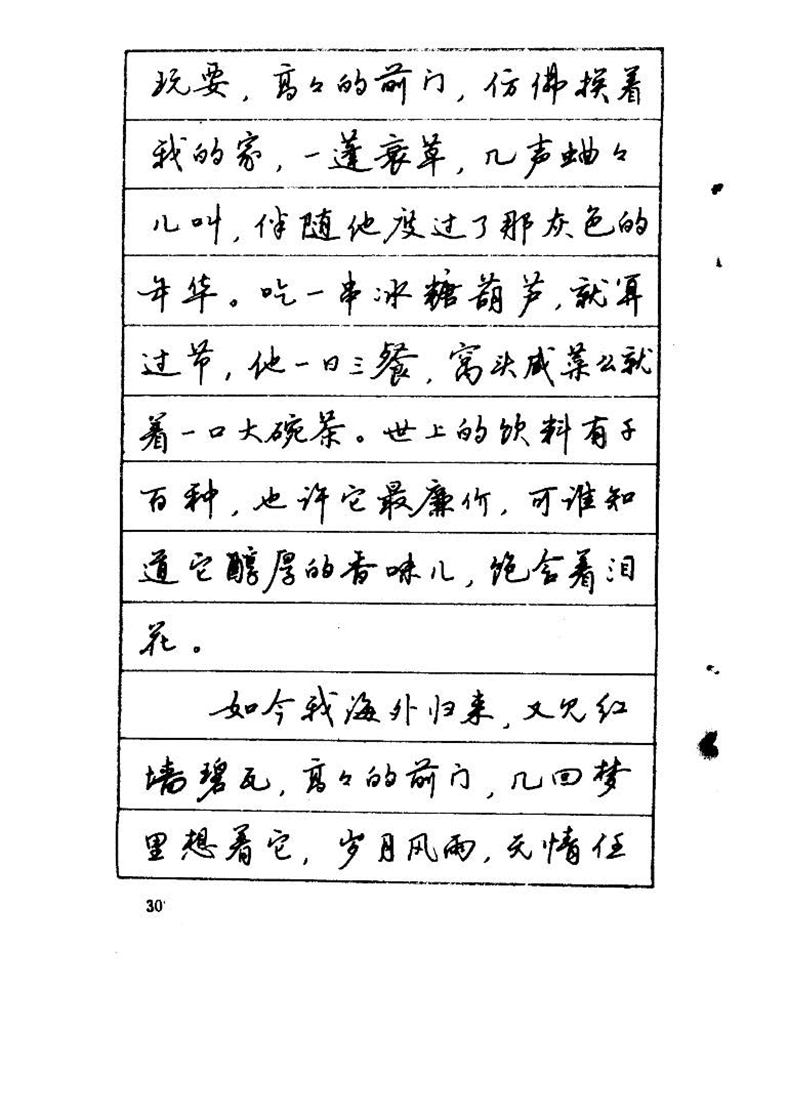 玩耍，高々的前门，仿佛挨着
我的家，一蓬衰草，几声蛐々
儿叫，伴随他度过了那灰色的
年华。吃一串冰糖葫芦，就算
过节，他一日三餐，窝头咸菜么就
着一口大碗茶。世上的饮料有千
百种，也许它最廉价，可谁知
道它醇厚的香味儿，饱含着泪
花。
如今我海外归来，又见红
墙碧瓦，高々的前门，几回梦
里想着它，岁月风雨，无情任
30